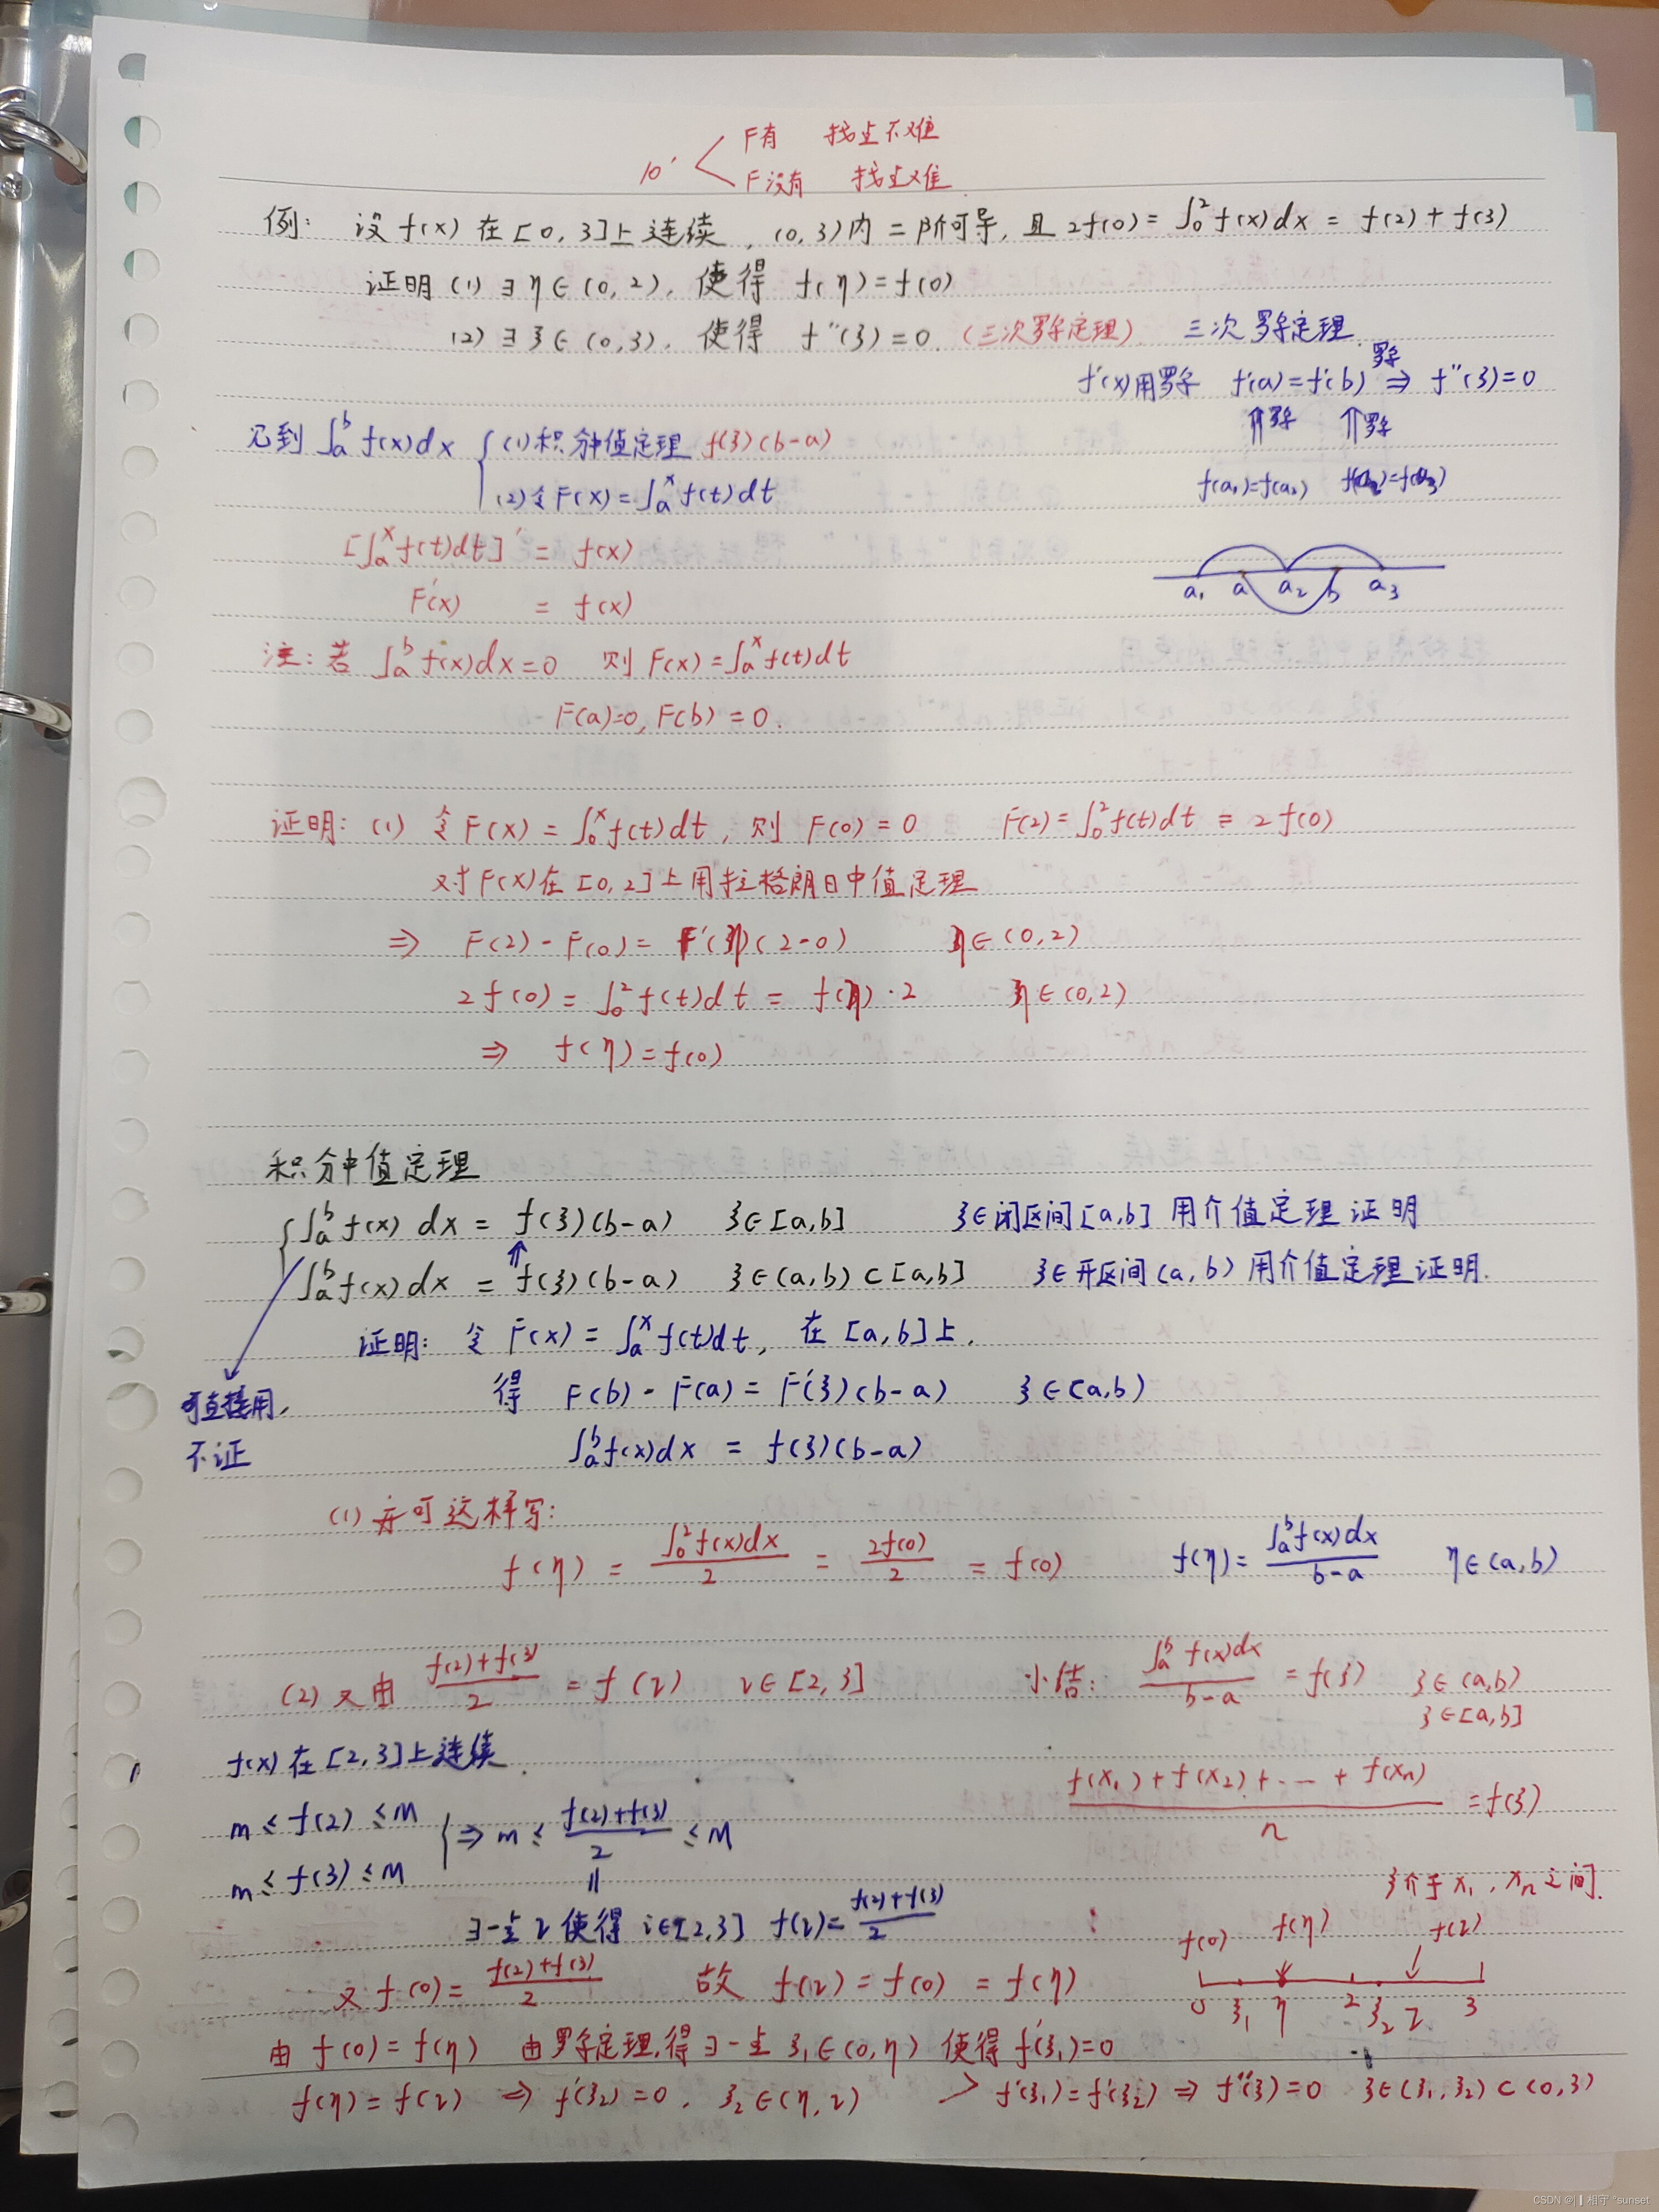 10' F有 找点不难
F没有 找点难
例: 设 f(x) 在 [0, 3]上连续, (0, 3)内二阶可导, 且 2f(0) = ∫₀² f(x)dx = f(2) + f(3)
证明 (1) ∃η∈(0, 2), 使得 f(η) = f(0)
(2) ∃ξ∈(0,3), 使得 f''(ξ) = 0. (三次罗尔定理) 三次罗尔定理.
f'(x)用罗尔 f'(a)=f'(b) 罗尔 ⇒ f''(ξ)=0
⇑罗尔 ⇑罗尔
f(a₁)=f(a₂) f(a₂)=f(a₃)
见到 ∫ₐᵇ f(x)dx { (1)积分中值定理 f(ξ)(b-a)
(2)令F(x) = ∫ₐˣ f(t)dt
[∫ₐˣ f(t)dt]' = f(x)
F'(x) = f(x)
a₁ a a₂ b a₃
注: 若 ∫ₐᵇ f(x)dx=0 则 F(x)=∫ₐˣ f(t)dt
F(a)=0, F(b)=0.
证明: (1) 令F(x) = ∫₀ˣ f(t)dt, 则 F(0) = 0 F(2) = ∫₀² f(t)dt = 2f(0)
对F(x)在[0, 2]上用拉格朗日中值定理
⇒ F(2) - F(0) = F'(η)(2-0) η∈(0,2)
2f(0) = ∫₀² f(t)dt = f(η)·2 η∈(0,2)
⇒ f(η) = f(0)
积分中值定理
{ ∫ₐᵇ f(x) dx = f(ξ)(b-a) ξ∈[a,b] ξ∈闭区间[a,b] 用介值定理证明
∫ₐᵇ f(x)dx = f(ξ)(b-a) ξ∈(a,b)⊂[a,b] ξ∈开区间(a, b) 用介值定理证明.
证明: 令 F(x) = ∫ₐˣ f(t)dt, 在[a,b]上.
可直接用,
不证
得 F(b) - F(a) = F'(ξ)(b-a) ξ∈(a,b)
∫ₐᵇ f(x)dx = f(ξ)(b-a)
(1) 亦可这样写:
f(η) = ∫₀² f(x)dx / 2 = 2f(0) / 2 = f(0) f(η) = ∫ₐᵇ f(x)dx / b-a η∈(a,b)
(2) 又由 f(2)+f(3) / 2 = f(τ) τ∈[2,3] 小结: ∫ₐᵇ f(x)dx / b-a = f(ξ) ξ∈(a,b)
ξ∈[a,b]
f(x) 在 [2,3]上连续.
f(x₁) + f(x₂) + ··· + f(xₙ) / n = f(ξ)
m ≤ f(2) ≤ M
m ≤ f(3) ≤ M } ⇒ m ≤ f(2)+f(3) / 2 ≤ M
ξ介于x₁, xₙ之间.
∃一点τ使得 τ∈[2,3] f(τ) = f(2)+f(3) / 2
f(0) f(η) f(τ)
0 ξ₁ η 2 ξ₂ τ 3
又 f(0) = f(2)+f(3) / 2 故 f(τ) = f(0) = f(η)
由 f(0) = f(η) 由罗尔定理,得∃一点 ξ₁∈(0,η) 使得 f'(ξ₁)=0
f(η) = f(τ) ⇒ f'(ξ₂)=0, ξ₂∈(η,τ) > f'(ξ₁)=f'(ξ₂) ⇒ f''(ξ)=0 ξ∈(ξ₁,ξ₂)⊂(0,3)
CSDN @|▎相守°sunset